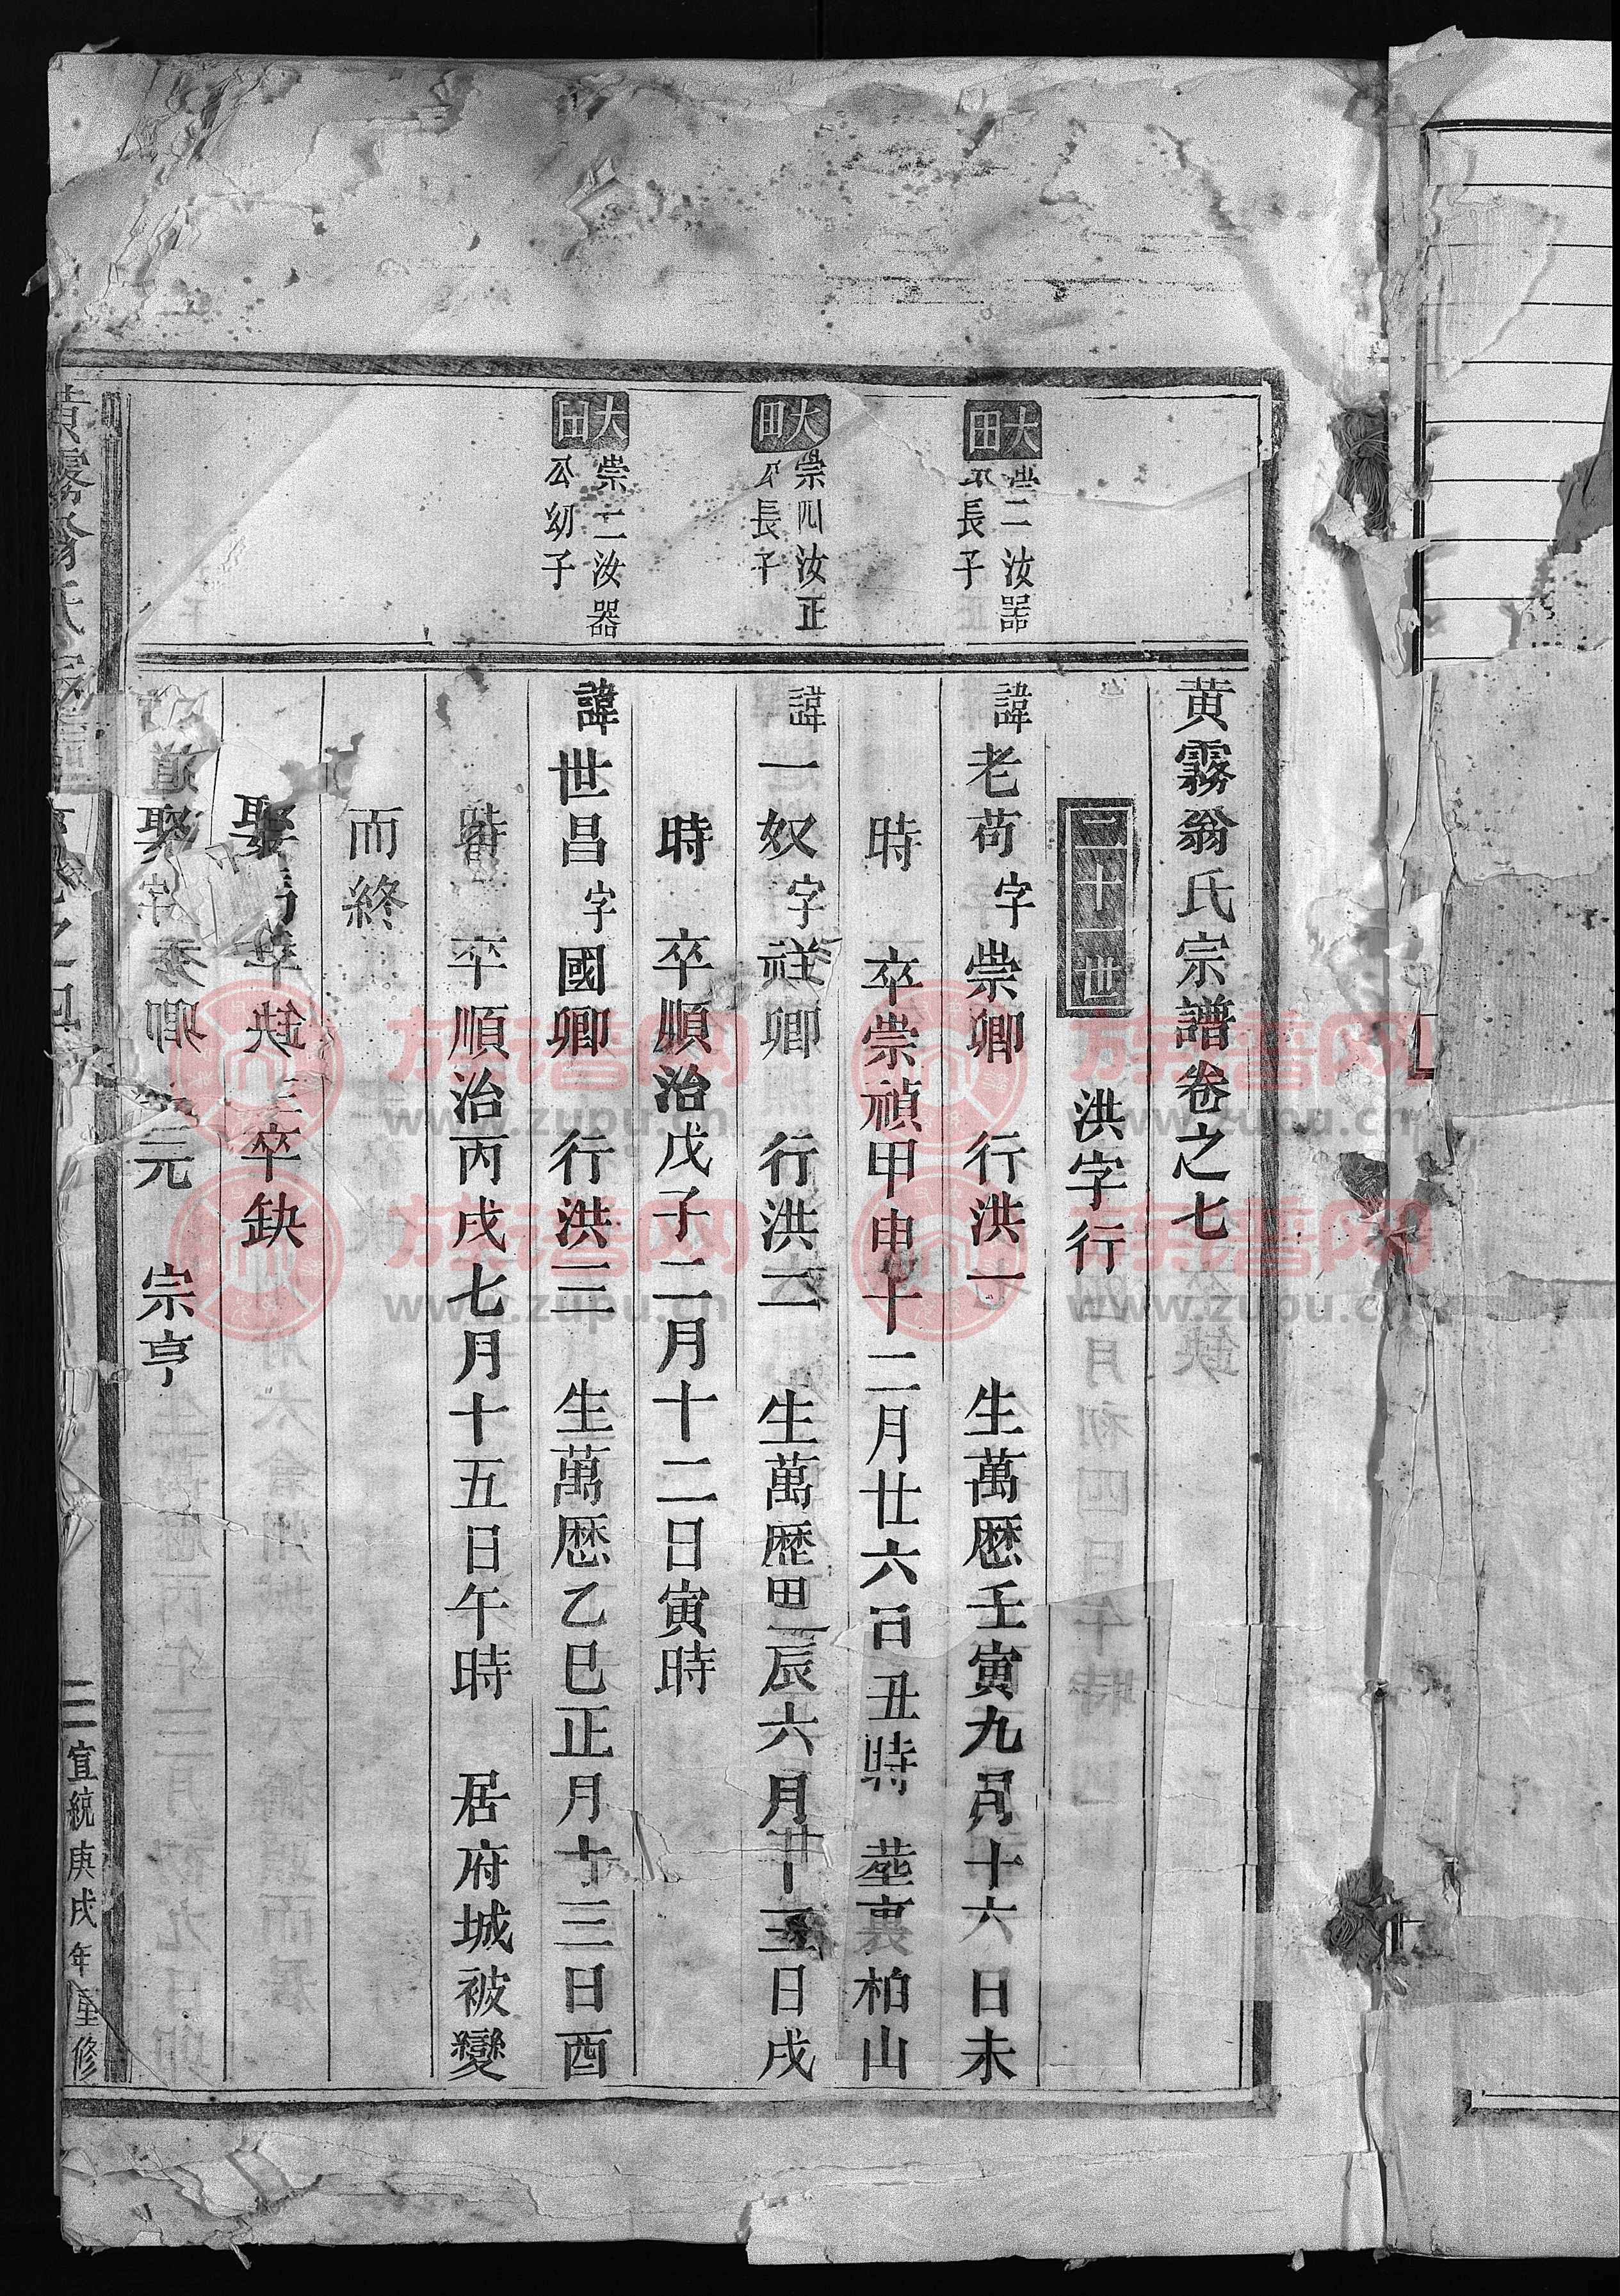 黄霧翁氏宗譜卷之七
二十一世 洪字行
大田
崇二汝器
公長子
諱老苟字崇卿 行洪一 生萬歷壬寅九月十六日未
時 卒崇禎甲申十二月廿六日丑時 塟裏柏山
大田
崇四汝正
公長子
諱一奴字祥卿 行洪二 生萬歷甲辰六月十三日戌
時 卒順治戊子二月十二日寅時
大田
崇二汝器
公幼子
諱世昌字國卿 行洪三 生萬歷乙巳正月十三日酉
時 卒順治丙戌七月十五日午時 居府城被變
而終
娶 缺 卒缺
宗亨
黄霧翁氏宗譜
宣統庚戌年重修
族谱网
www.zupu.cn
族谱网
www.zupu.cn
族谱网
www.zupu.cn
族谱网
www.zupu.cn